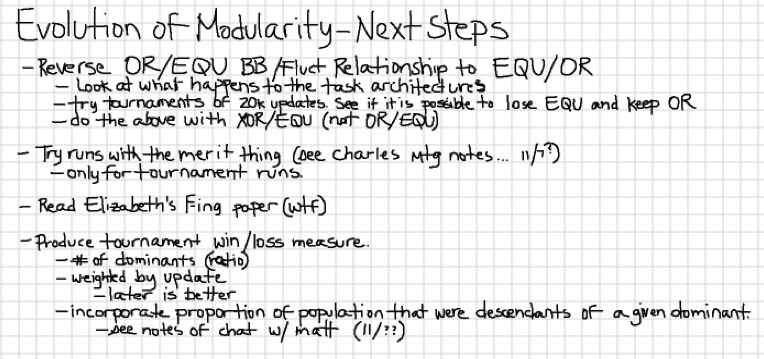 Evolution of Modularity-Next Steps
- Reverse OR/EQU BB/Fluct Relationship to EQU/OR
- Look at what happens to the task architectures
- try tournaments of 20k updates. See if it is possible to lose EQU and keep OR
- do the above with XOR/EQU (not OR/EQU)
- Try runs with the merit thing (see Charles Mtg notes... 11/7?)
- only for tournament runs.
- Read Elizabeth's Fing paper (wtf)
- Produce tournament win/loss measure.
- # of dominants (ratio)
- weighted by update
- later is better
- incorporate proportion of population that were descendants of a given dominant.
- see notes of chat w/ matt (11/??)